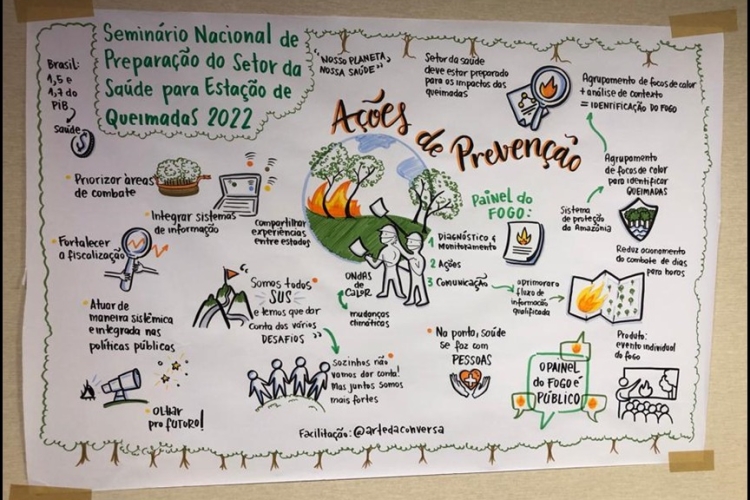 Seminário Nacional de
Preparação do Setor da
Saúde para Estação de
Queimadas 2022
Brasil:
1,5 e
1,7 do
PiB
Saúde
$
"NOSSO PLANETA,
NOSSA SAÚDE"
Setor da saúde
deve estar preparado
para os impactos das
queimadas
Agrupamento de focos de calor
+ análise de contexto
= IDENTIFICAÇÃO DO FOGO
Ações
de Prevenção
Agrupamento
de focos de calor
para identificar
QUEIMADAS
Sistema
de proteção
da Amazônia
Reduz acionamento
do combate de dias
para horas
PAiNEL DO
FOGO:
1 DIAGNÓSTICO e
Monitoramento
2 Ações
3 Comunicação
aprimorar o
fluxo de
informação
qualificada
Produto:
evento individual
do fogo
Priorizar áreas
de combate
Integrar sistemas
de informação
compartilhar
experiências
entre estados
Fortalecer
a fiscalização
Atuar de
maneira sistêmica
e integrada nas
políticas públicas
OLHAR
pro FUTURO!
Somos todos
SUS
e temos que dar
conta dos vários
DESAFIOS
ONDAS
de CALOR
mudanças
climáticas
Sozinhos não
vamos dar conta!
Mas juntos somos
mais fortes
Na ponta, saúde
se faz com
PESSOAS
O PAiNEL
do FOGO É
PÚBLICO
Facilitação: @artedaconversa